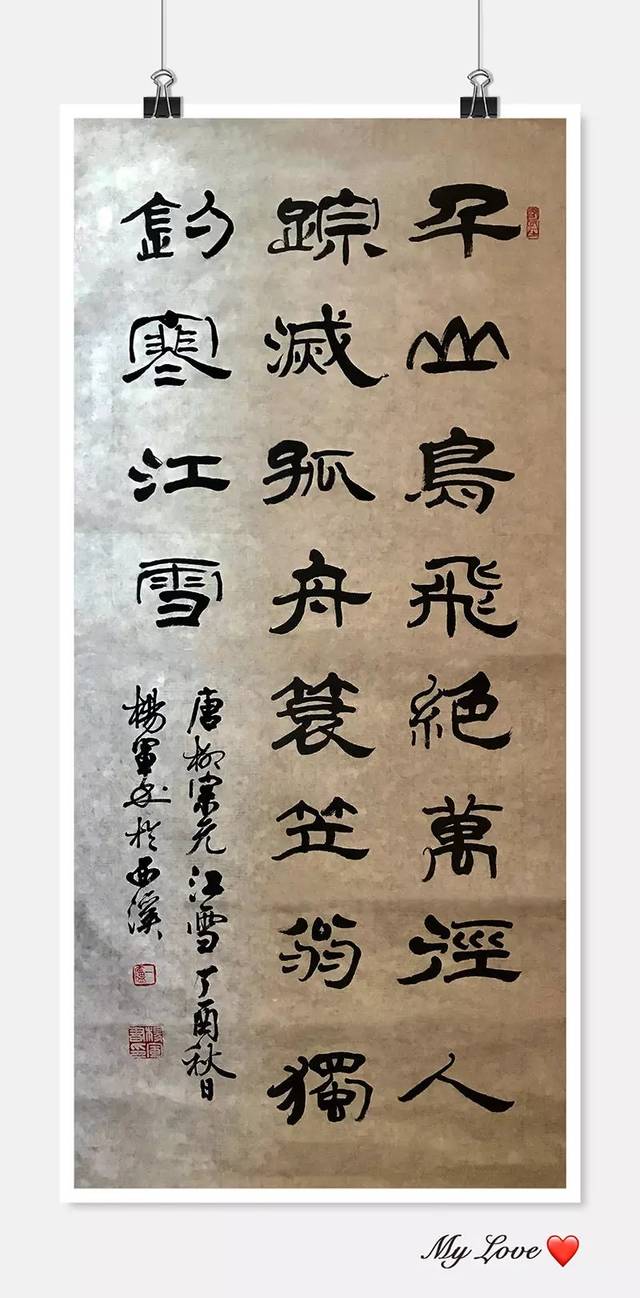 千山鳥飛絶萬徑人
踪滅孤舟蓑笠翁獨
釣寒江雪
唐柳宗元江雪丁酉秋日
楊軍書於西溪
My Love